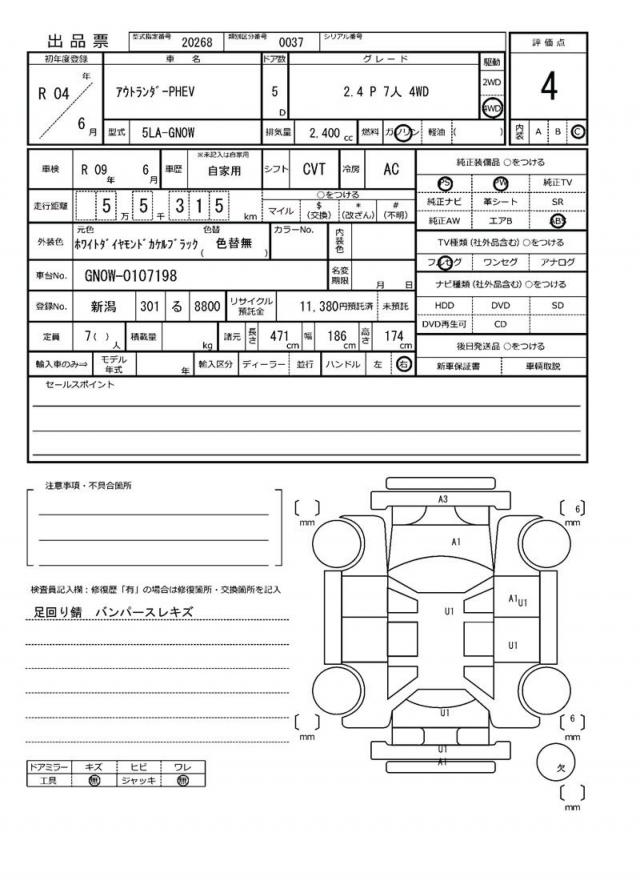 出品票 型式指定番号 20268 類別区分番号 0037 シリアル番号
評価点
初年度登録 車名 ドア数 グレード 駆動
R 04 年 6 月 アウトランダ-PHEV 5 D 2.4 P 7人 4WD 2WD 4WD
4
型式 5LA-GN0W 排気量 2,400 cc 燃料 ガソリン 軽油 ( )
内装 A B C
車検 R 09 年 6 月 車歴 ※未記入は自家用 自家用 シフト CVT 冷房 AC
走行距離 5 5万 5 千 3 1 5 km ○をつける マイル $(交換) *(改ざん) #(不明)
外装色 元色 ホワイトダイヤモンドカケルブラック 色替 ( 色替無 ) カラーNo. 内装色
車台No. GN0W-0107198 名変期限 月 日
登録No. 新潟 301 る 8800 リサイクル預託金 11,380円預託済 未預託
定員 7( ) 人 積載量 kg 諸元 長さ 471 cm 幅 186 cm 高さ 174 cm
輸入車のみ⇒ モデル年式 年 輸入区分 ディーラー 並行 ハンドル 左 右
純正装備品 ○をつける
PS PW 純正TV
純正ナビ 革シート SR
純正AW エアB ABS
TV種類(社外品含む) ○をつける
フルセグ ワンセグ アナログ
ナビ種類(社外品含む) ○をつける
HDD DVD SD
DVD再生可 CD
後日発送品 ○をつける
新車保証書 車輌取説
セールスポイント
注意事項・不具合箇所
検査員記入欄：修復歴「有」の場合は修復箇所・交換箇所を記入
足回り錆 バンパースレキズ
ドアミラー キズ ヒビ ワレ
工具 無 ジャッキ 無
A3
[ ] mm
[ 6 ] mm
A1
U1
A1 U1
U1
U1
[ ] mm
[ 6 ] mm
U1
A1
欠
[ ] mm